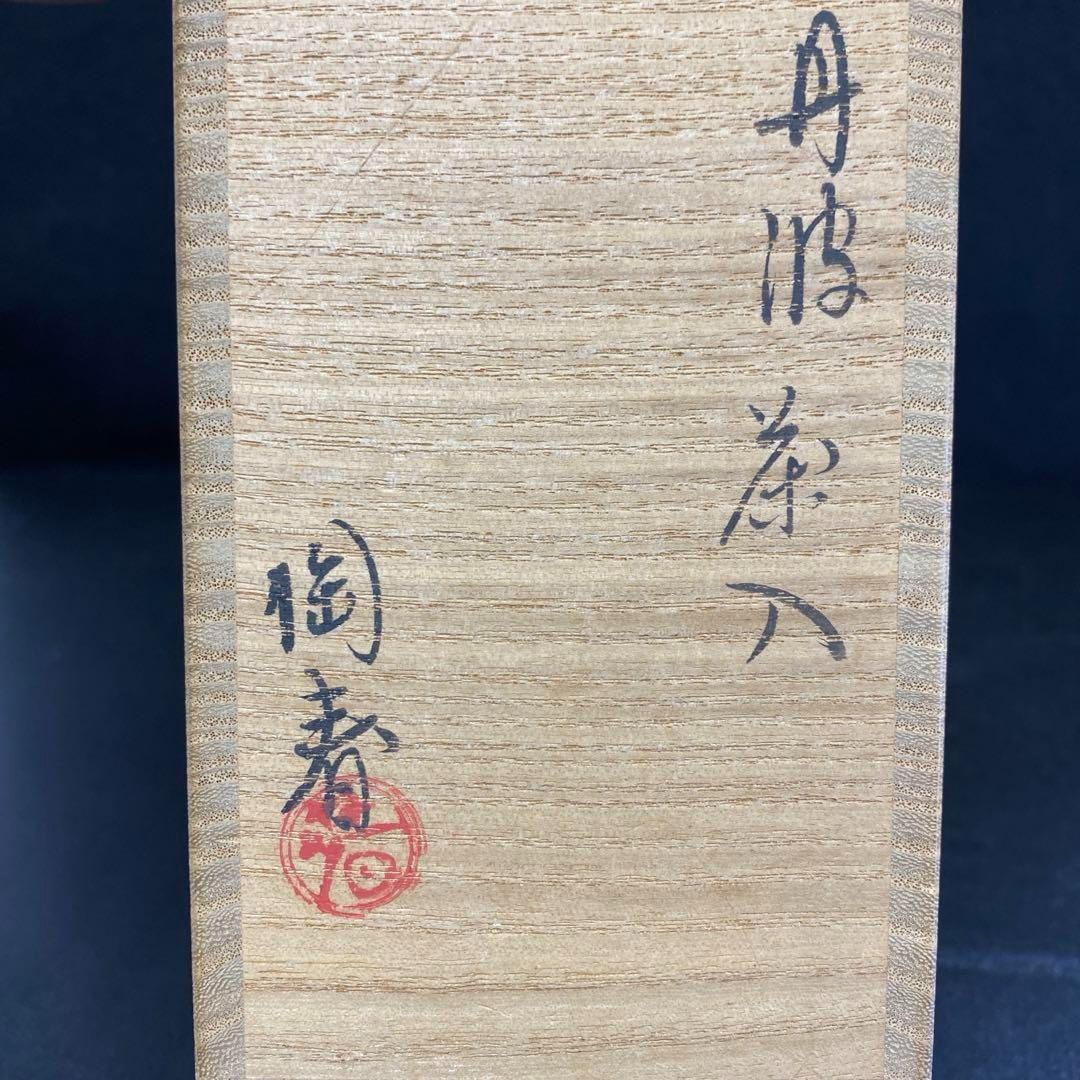 丹波 茶入
陶春